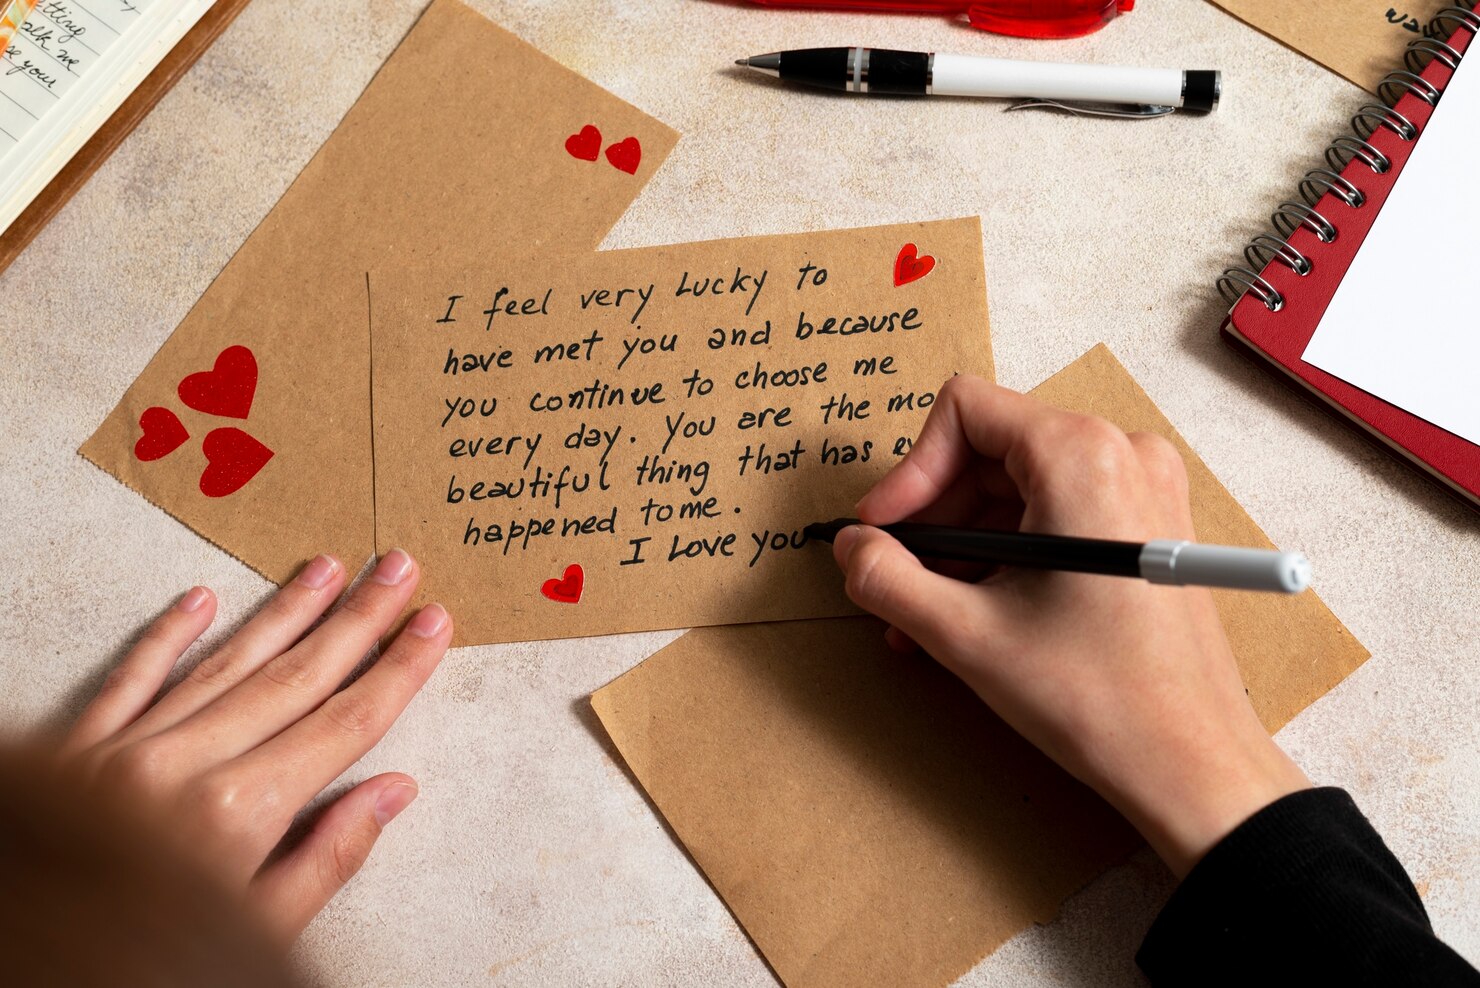 I feel very Lucky to
have met you and because
you continue to choose me
every day. You are the mo
beautiful thing that has
happened to me.
I Love you
your